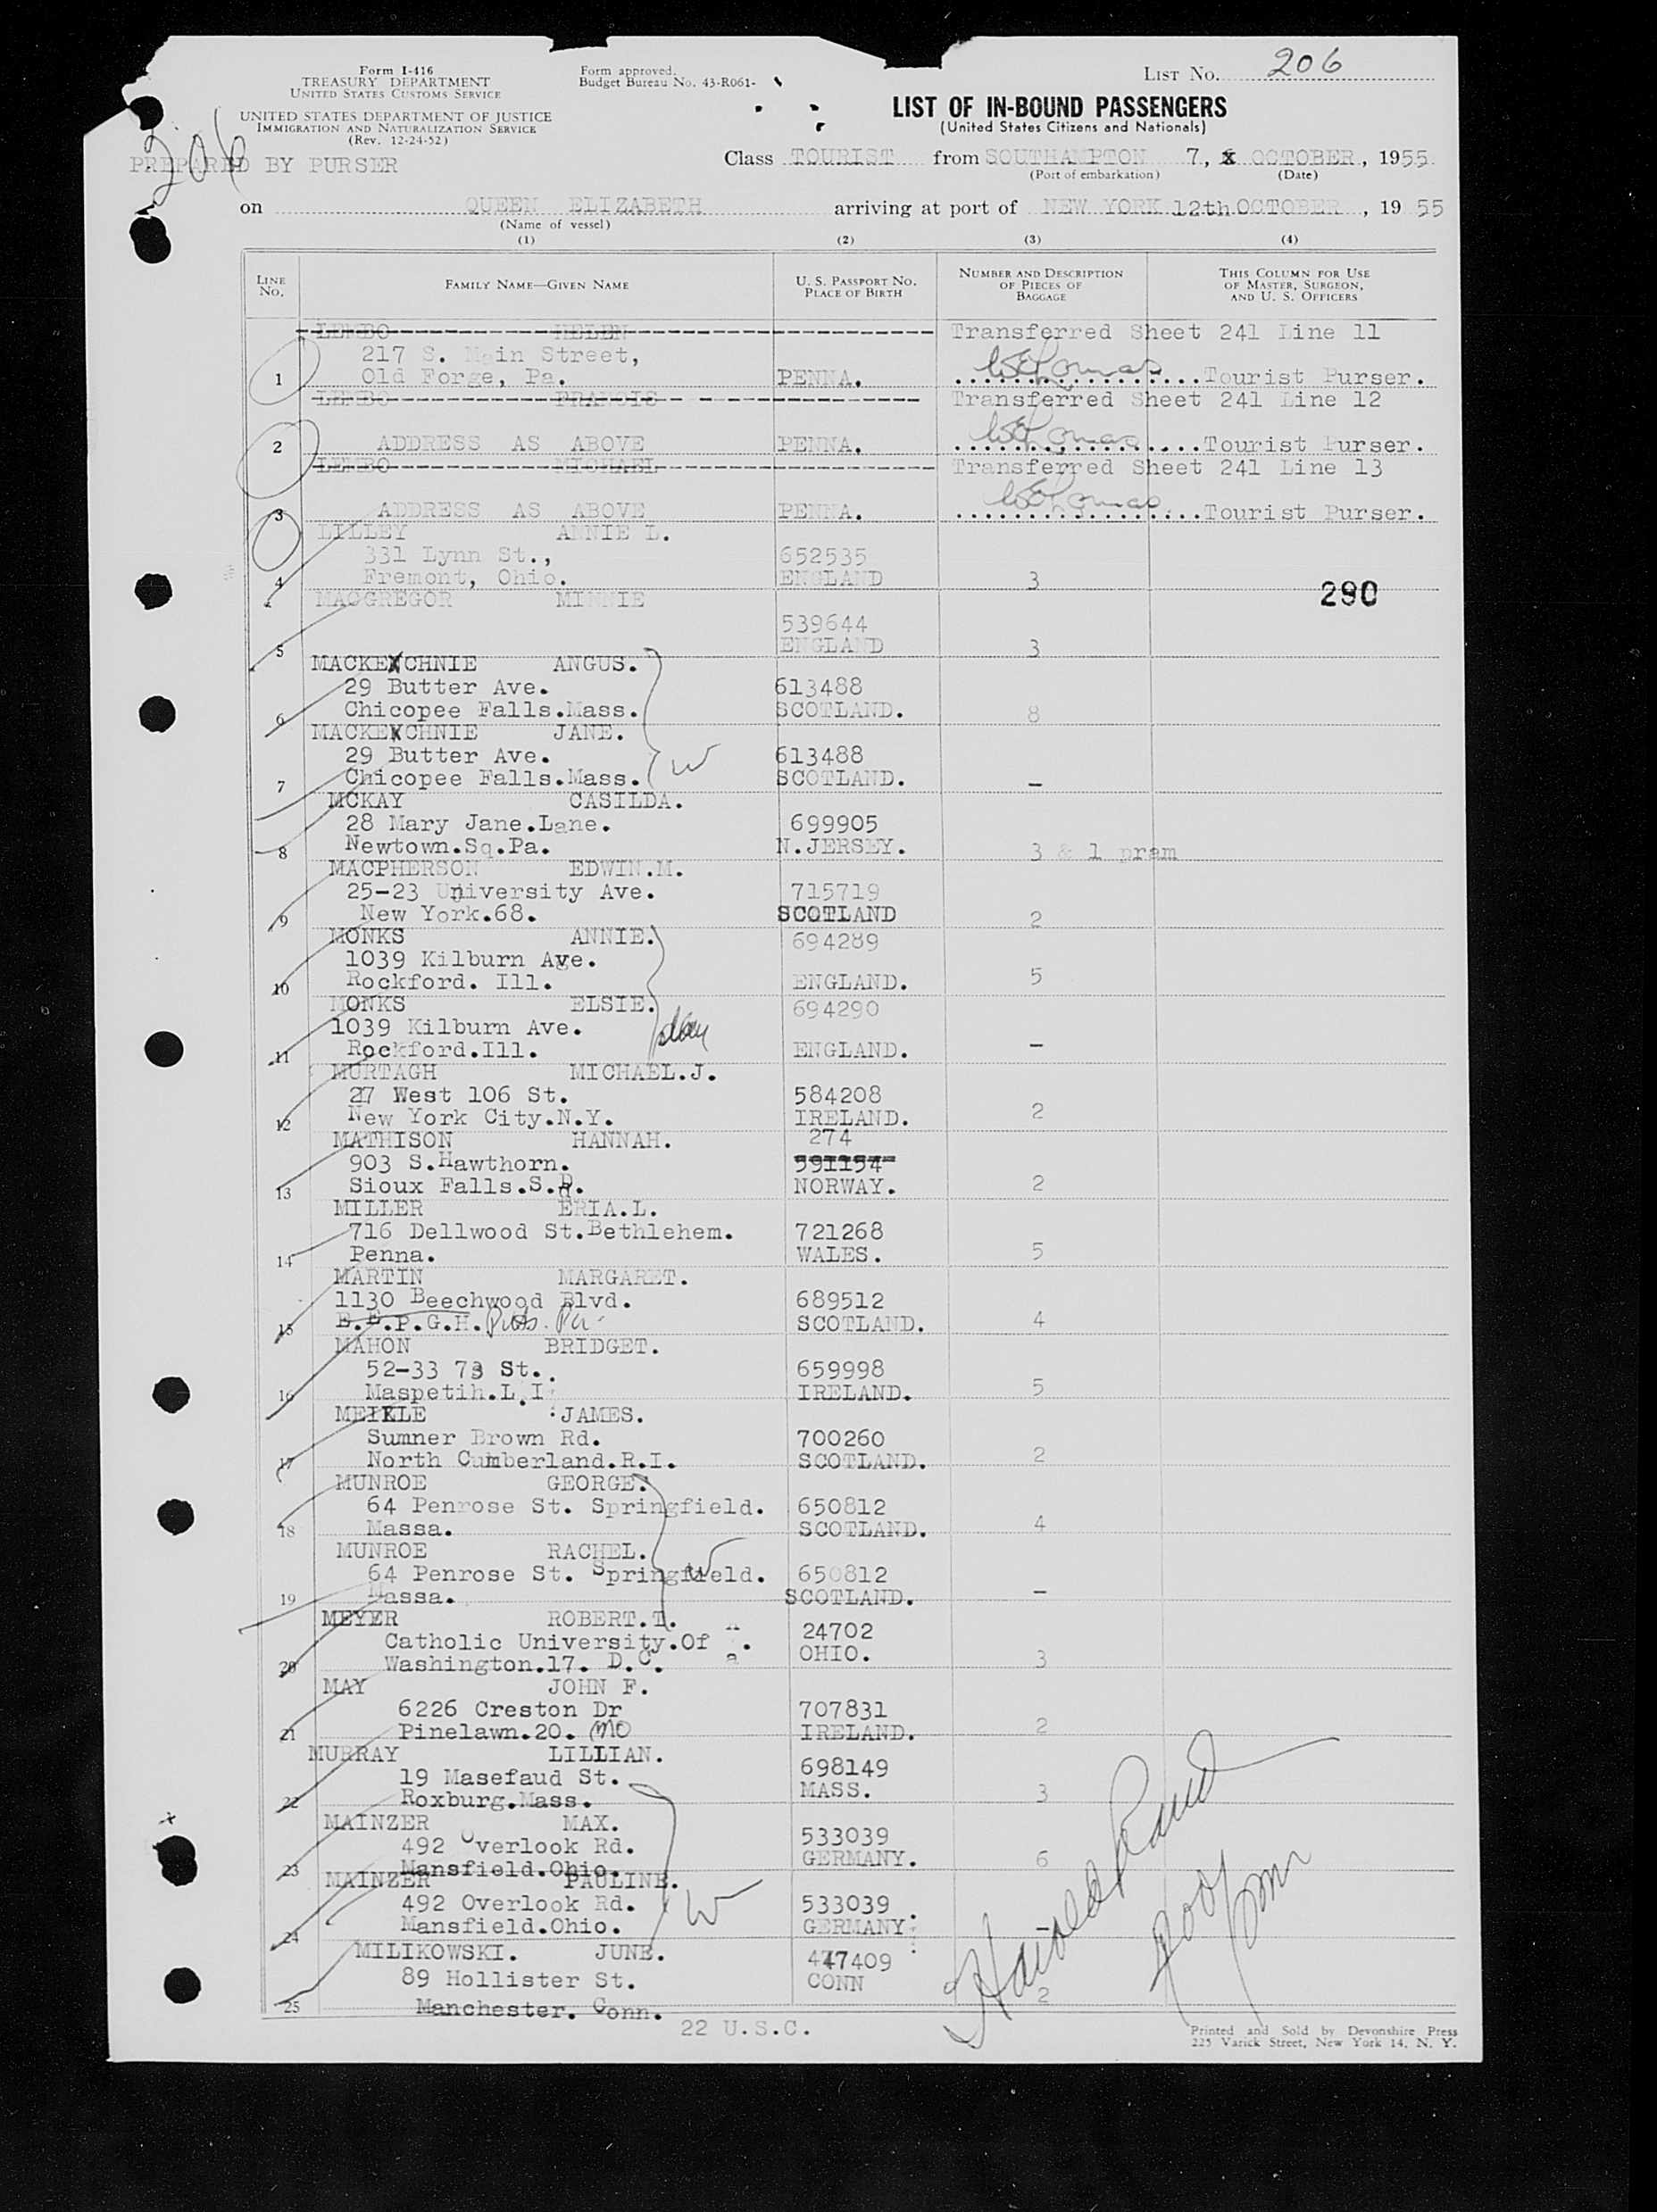 Form I-416
TREASURY DEPARTMENT
UNITED STATES CUSTOMS SERVICE
UNITED STATES DEPARTMENT OF JUSTICE
IMMIGRATION AND NATURALIZATION SERVICE
(Rev. 12-24-52)
Form approved.
Budget Bureau No. 43-R061-
LIST No. 206
LIST OF IN-BOUND PASSENGERS
(United States Citizens and Nationals)
206
PREPARED BY PURSER
Class TOURIST from SOUTHAMPTON 7, OCTOBER, 1955
(Port of embarkation) (Date)
on QUEEN ELIZABETH arriving at port of NEW YORK 12th OCTOBER, 19 55
(Name of vessel)
(1) (2) (3) (4)
LINE No. FAMILY NAME—GIVEN NAME U. S. PASSPORT No. PLACE OF BIRTH NUMBER AND DESCRIPTION OF PIECES OF BAGGAGE THIS COLUMN FOR USE OF MASTER, SURGEON, AND U. S. OFFICERS
LEMBO HELEN Transferred Sheet 241 Line 11
217 S. Main Street,
1 Old Forge, Pa. PENNA. Tourist Purser.
LEMBO FRANCIS Transferred Sheet 241 Line 12
2 ADDRESS AS ABOVE PENNA. Tourist Purser.
LEMBO MICHAEL Transferred Sheet 241 Line 13
3 ADDRESS AS ABOVE PENNA. Tourist Purser.
LILLEY ANNIE L.
331 Lynn St., 652535
4 Fremont, Ohio. ENGLAND 3
290
MACGREGOR MINNIE
539644
5 ENGLAND 3
MACKECHNIE ANGUS.
29 Butter Ave. 613488
6 Chicopee Falls.Mass. SCOTLAND. 8
MACKECHNIE JANE.
29 Butter Ave. 613488
7 Chicopee Falls.Mass. W SCOTLAND. -
MCKAY CASILDA.
28 Mary Jane.Lane. 699905
8 Newtown.Sq.Pa. N.JERSEY. 3 & 1 pram
MACPHERSON EDWIN.M.
25-23 University Ave. 715719
9 New York.68. SCOTLAND 2
MONKS ANNIE. 694289
1039 Kilburn Ave.
10 Rockford. Ill. ENGLAND. 5
MONKS ELSIE. 694290
1039 Kilburn Ave.
11 Rockford.Ill. ENGLAND. -
MURTAGH MICHAEL.J.
27 West 106 St. 584208
12 New York City.N.Y. IRELAND. 2
MATHISON HANNAH. 274
903 S.Hawthorn. 591154
13 Sioux Falls.S.D. NORWAY. 2
MILLER ERIA.L.
716 Dellwood St.Bethlehem. 721268
14 Penna. WALES. 5
MARTIN MARGARET.
1130 Beechwood Blvd. 689512
15 E.E.P.G.H. Pitts. Pa. SCOTLAND. 4
MAHON BRIDGET.
52-33 73 St. 659998
16 Maspetih.L.I. IRELAND. 5
MEIKLE JAMES.
Sumner Brown Rd. 700260
17 North Cumberland.R.I. SCOTLAND. 2
MUNROE GEORGE.
64 Penrose St. Springfield. 650812
18 Massa. SCOTLAND. 4
MUNROE RACHEL.
64 Penrose St. Springfield. W 650812
19 Massa. SCOTLAND. -
MEYER ROBERT.T.
Catholic University.Of 24702
20 Washington.17. D.C. OHIO. 3
MAY JOHN F.
6226 Creston Dr 707831
21 Pinelawn.20. MO IRELAND. 2
MURRAY LILLIAN.
19 Masefaud St. 698149
22 Roxburg.Mass. MASS. 3
MAINZER MAX.
492 Overlook Rd. 533039
23 Mansfield.Ohio. GERMANY. 6
MAINZER PAULINE.
492 Overlook Rd. W 533039
24 Mansfield.Ohio. GERMANY. -
MILIKOWSKI. JUNE. 447409
89 Hollister St. CONN
25 Manchester. Conn. 2
22 U.S.C.
Printed and Sold by Devonshire Press
225 Varick Street, New York 14, N. Y.